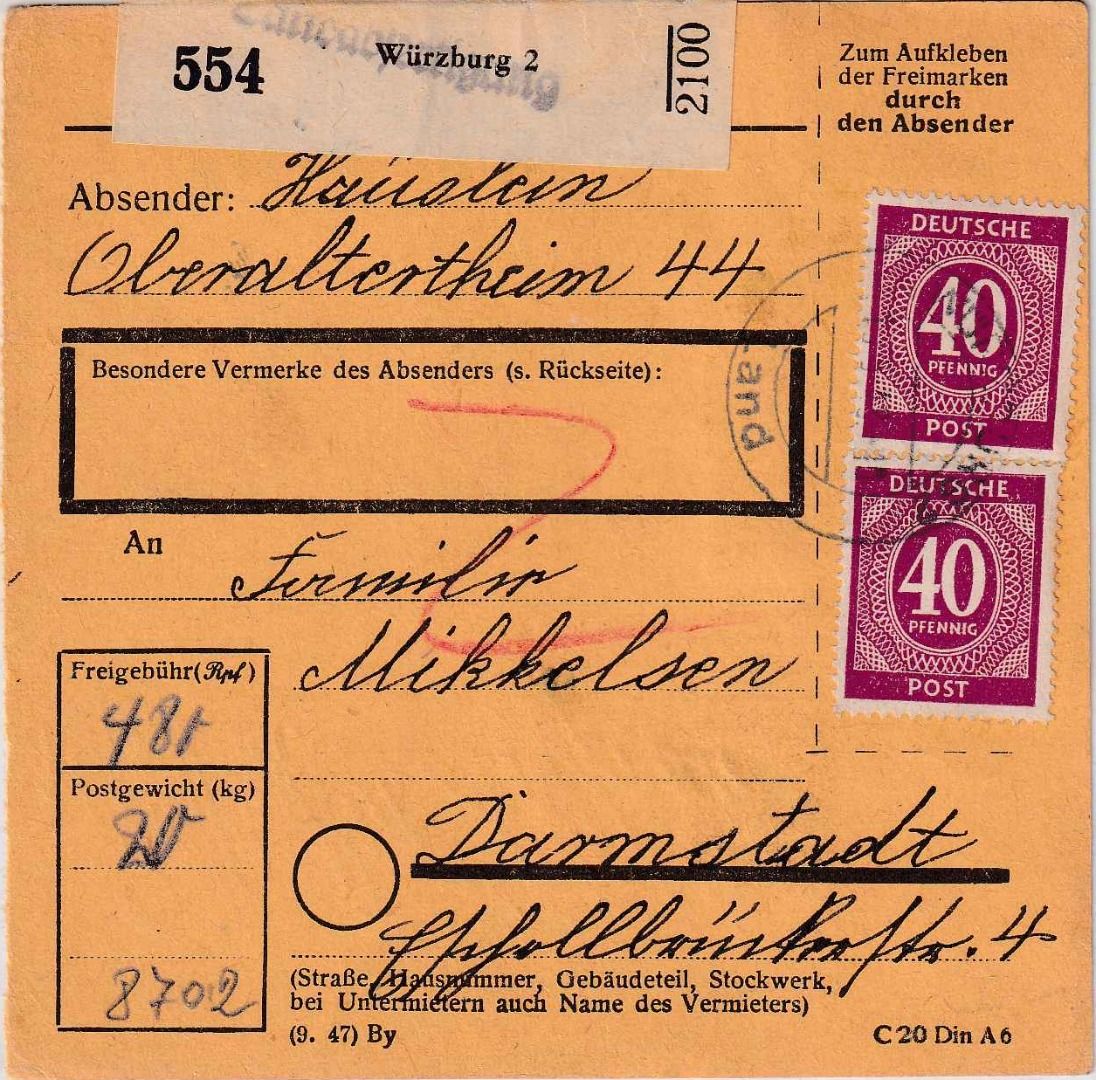 554 Würzburg 2 2100
Zum Aufkleben
der Freimarken
durch
den Absender
Absender: Häuslein
Oberaltertheim 44
DEUTSCHE
40
PFENNIG
POST
Land
Besondere Vermerke des Absenders (s. Rückseite):
DEUTSCHE
40
PFENNIG
POST
An Familie
Mikkelsen
Freigebühr (Rpf)
Postgewicht (kg)
20
Darmstadt
4
8702
(Straße, Hausnummer, Gebäudeteil, Stockwerk,
bei Untermietern auch Name des Vermieters)
(9. 47) By
C 20 Din A 6